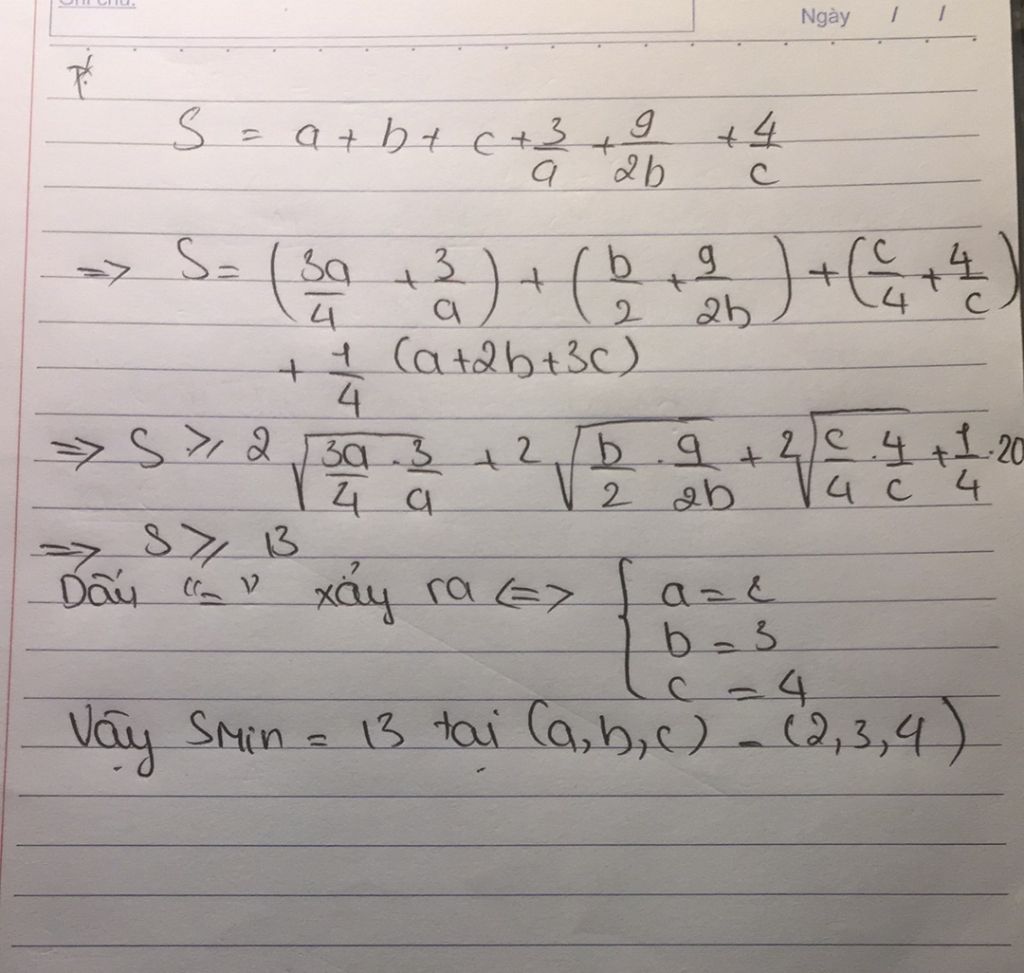 Ghi chú:
Ngày / /
S = a + b + c + 3/a + 9/2b + 4/c
=> S = (3a/4 + 3/a) + (b/2 + 9/2b) + (c/4 + 4/c)
+ 1/4 (a+2b+3c)
=> S ≥ 2 √(3a/4 . 3/a) + 2 √(b/2 . 9/2b) + 2 √(c/4 . 4/c) + 1/4 . 20
=> S ≥ 13
Dấu "=" xảy ra <=> { a = 2
b = 3
c = 4
Vậy SMin = 13 tại (a,b,c) = (2,3,4)